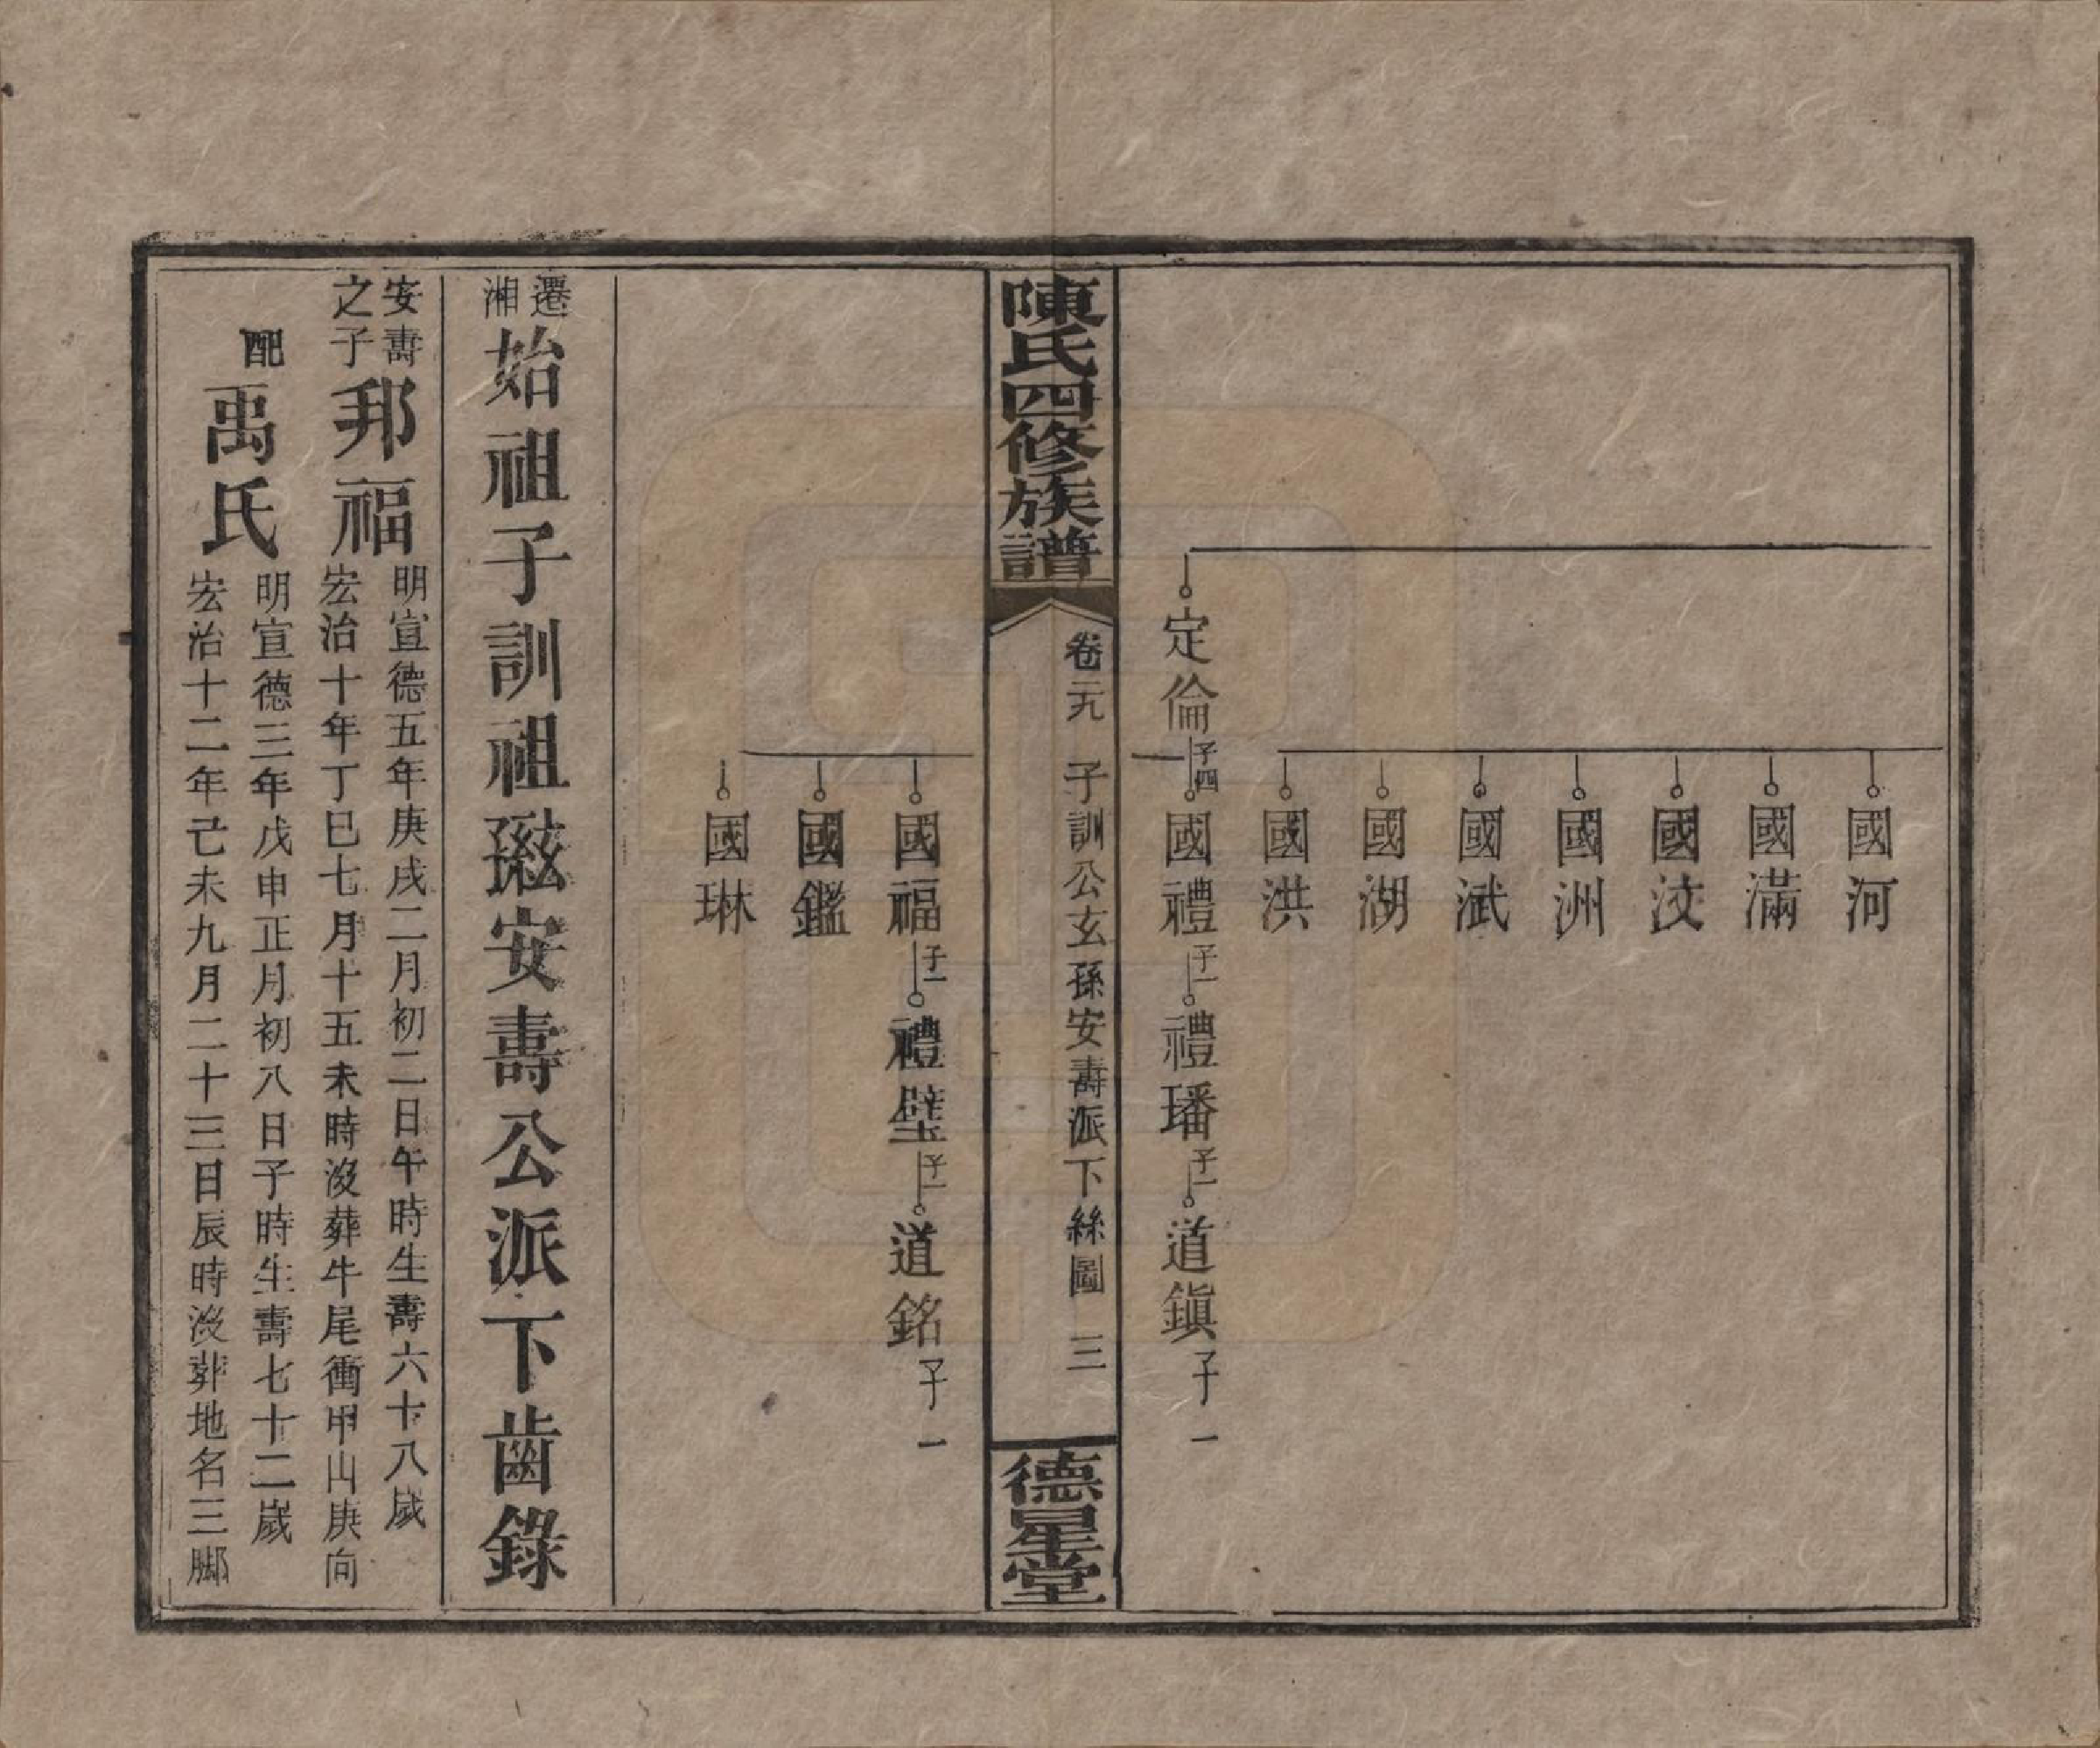 定倫 子四
國河
國滿
國汶
國洲
國淢
國湖
國洪
國禮 子一 禮璠 子一 道鎭 子一
陳氏四修族譜
卷二九 子訓公玄孫安壽派下絲圖 三
德星堂
國福 子一 禮璧 子一 道銘 子一
國鑑
國琳
遷湘始祖子訓祖玄孫安壽公派下齒錄
安壽之子 邦福
明宣德五年庚戌二月初二日午時生壽六十八歲
宏治十年丁巳七月十五未時沒葬牛尾衝甲山庚向
配 禹氏
明宣德三年戊申正月初八日子時生壽七十二歲
宏治十二年己未九月二十三日辰時沒葬地名三腳